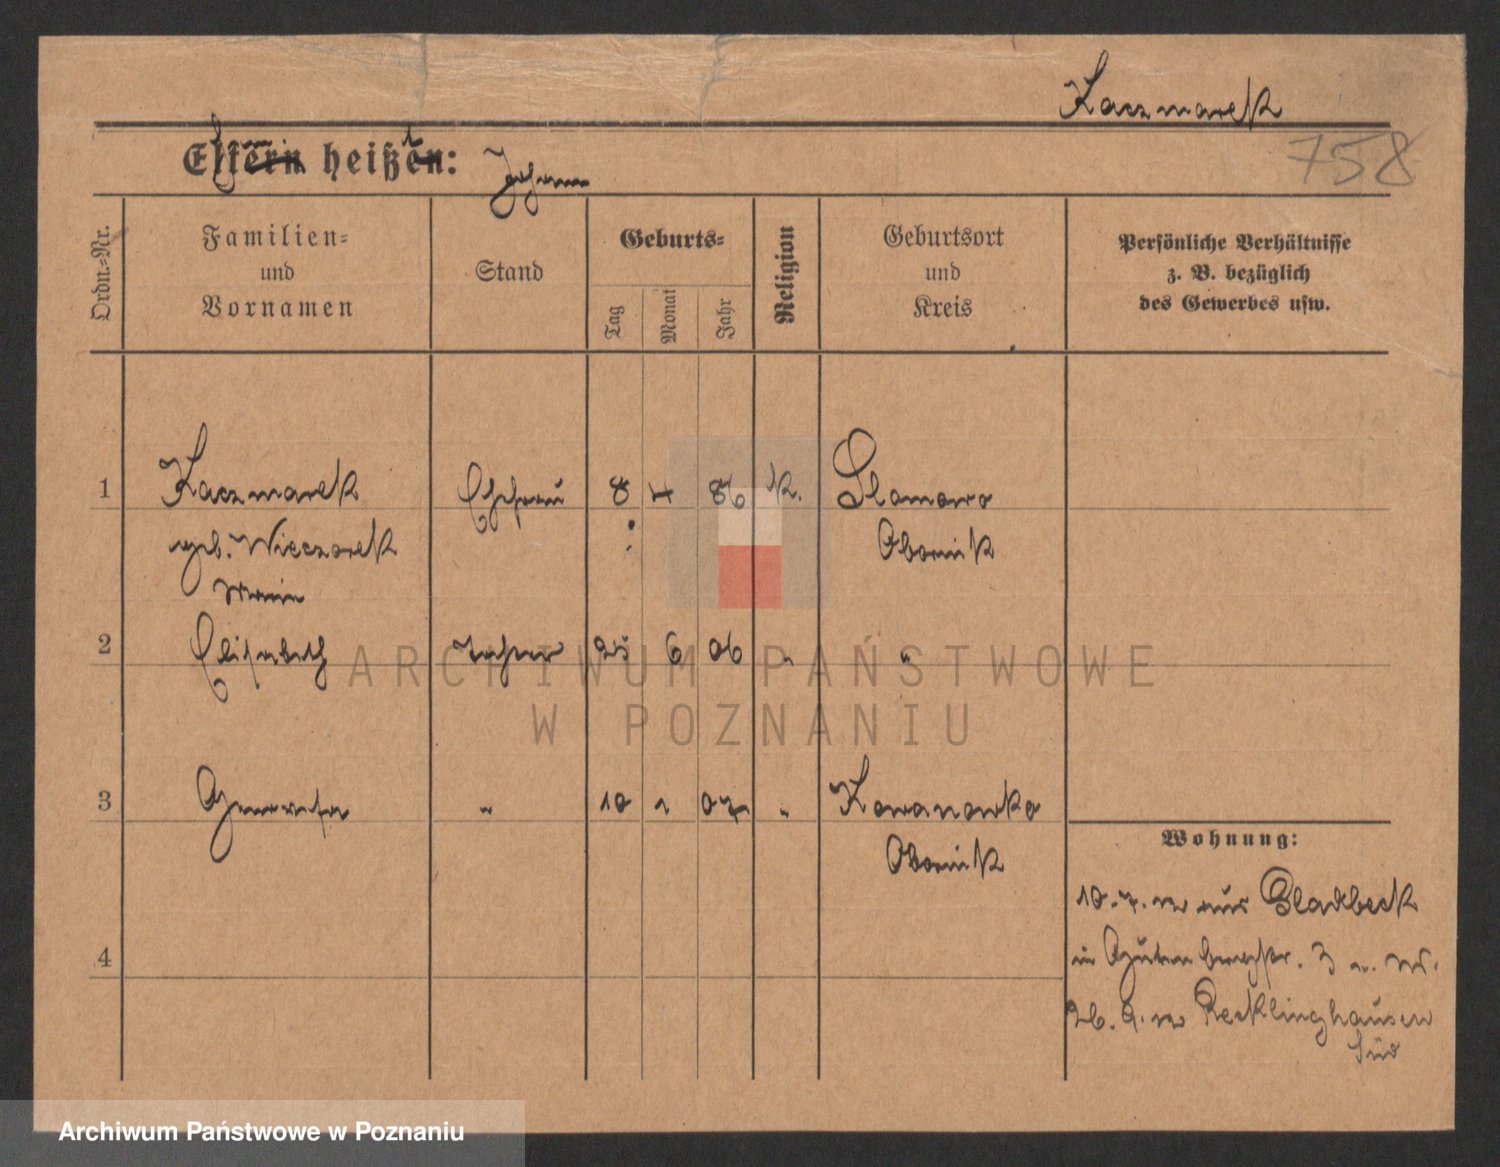 Kaczmarek
758
Eltern heißen: Johann
Ordn.-Nr.
Familien-
und
Vornamen
Stand
Geburts-
Tag
Monat
Jahr
Religion
Geburtsort
und
Kreis
Persönliche Verhältnisse
z. B. bezüglich
des Gewerbes usw.
1 Kaczmarek Ehefrau 8 4 86 K. Slomowo
geb. Wieczorek Obornik
2 Elisabeth Tochter 25 6 06 " "
ARCHIWUM PAŃSTWOWE
W POZNANIU
3 " 10 1 07 " Kowanowko
Obornik
Wohnung:
10.7. aus Gladbeck
in Gutenbergstr. 3
26.9. Recklinghausen
Süd
4
Archiwum Państwowe w Poznaniu